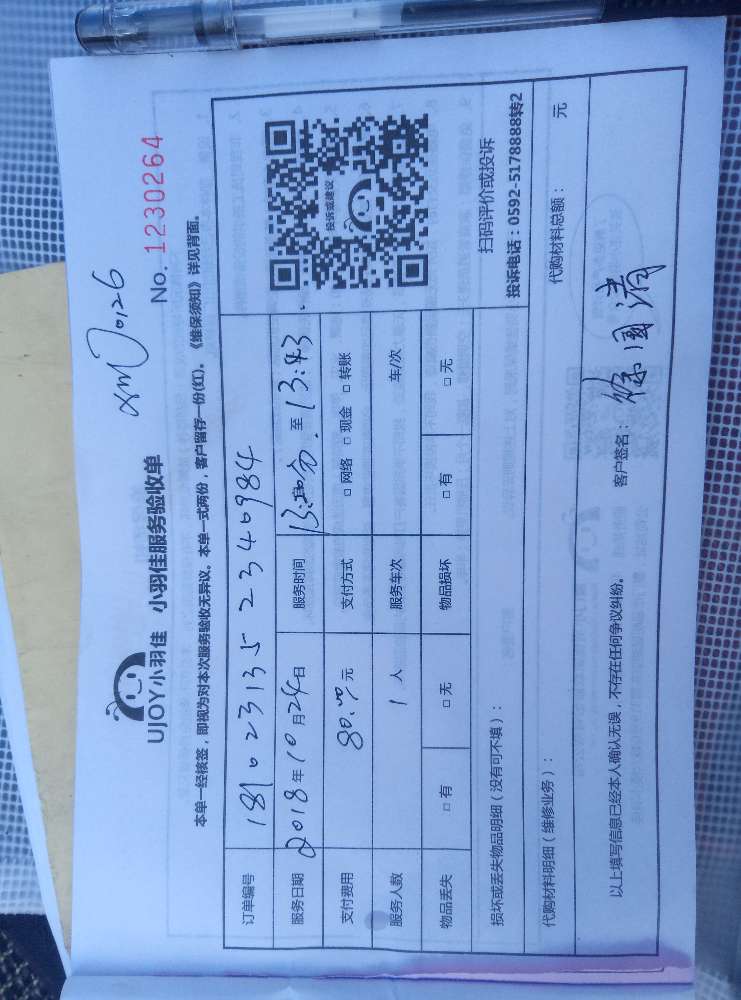 xmJ0126
UJOY小羽佳 小羽佳服务验收单
No. 1230264
本单一经核签，即视为对本次服务验收无异议。本单一式两份，客户留存一份(红)。《维保须知》详见背面。
订单编号 1810231352340984
服务日期 2018年10月24日 服务时间 至 13:43
支付费用 80.00元 支付方式 □ 网络 □ 现金 □ 转账
服务人数 1 人 服务车次 车/次
物品丢失 □ 有 □ 无 物品损坏 □ 有 □ 无
投诉或建议
扫码评价或投诉
投诉电话：0592-5178888转2
损坏或丢失物品明细（没有可不填）：
代购材料明细（维修业务）： 代购材料总额： 元
以上填写信息已经本人确认无误，不存在任何争议纠纷。 客户签名：